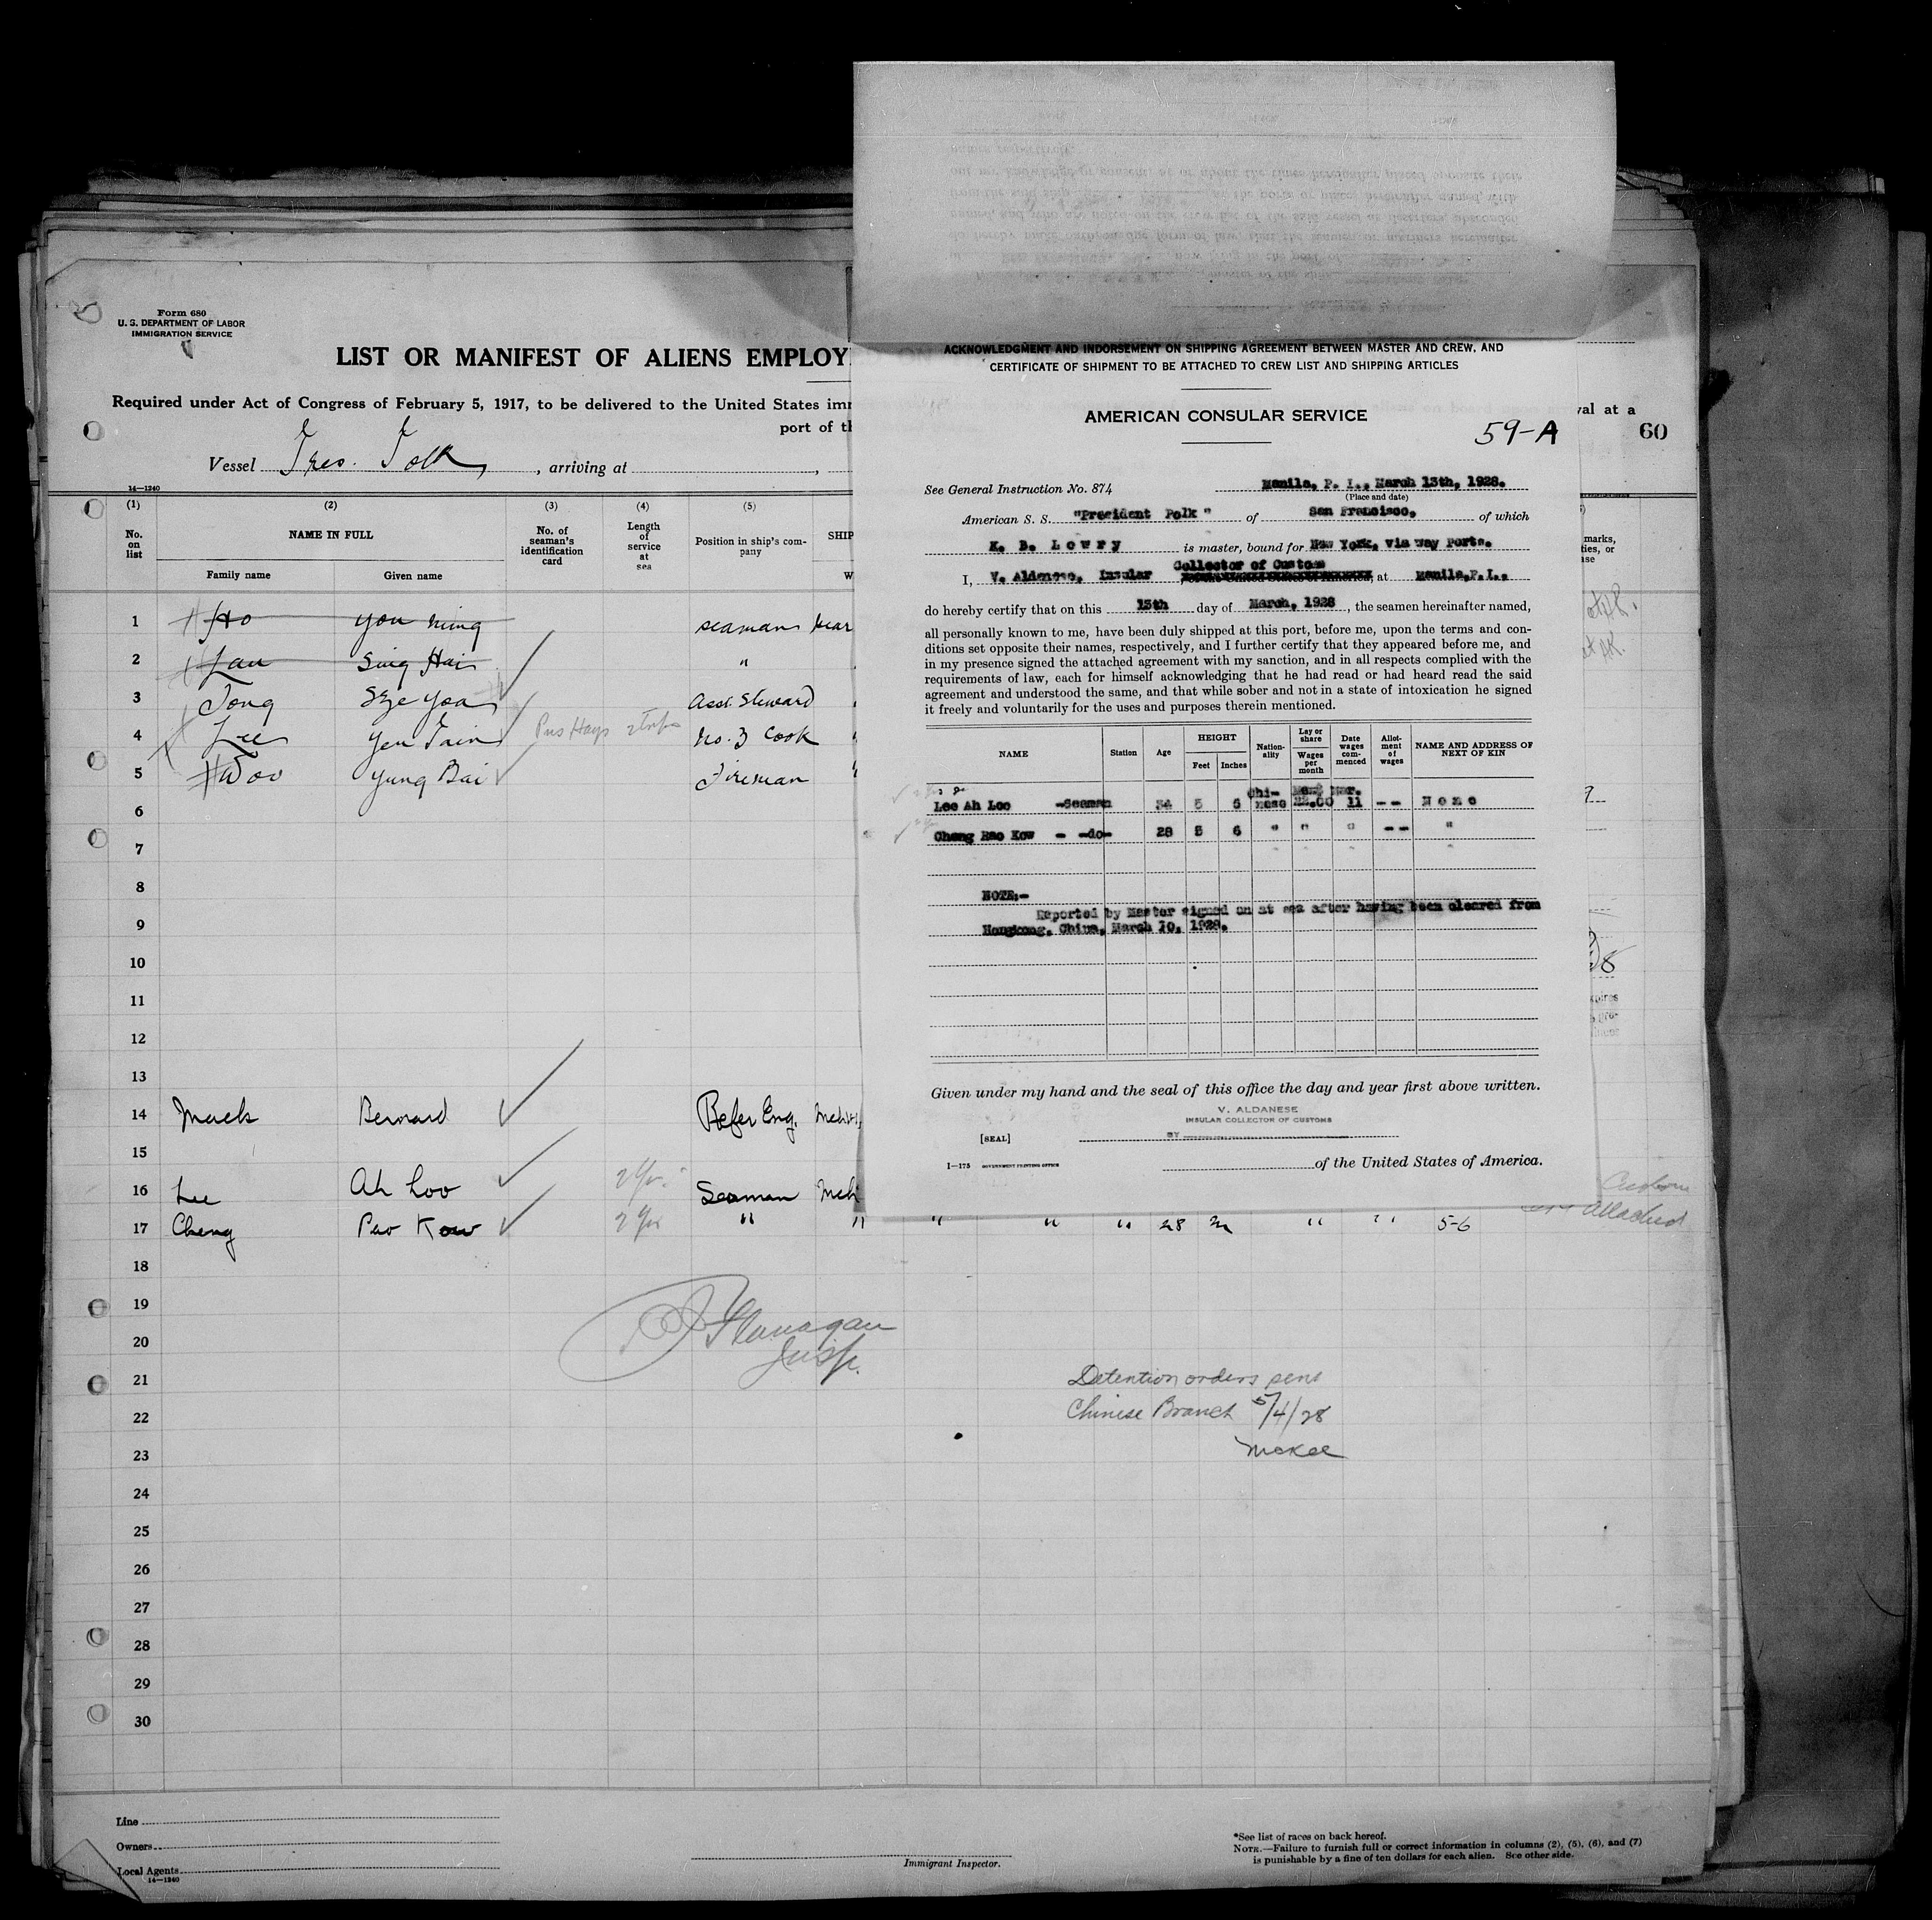 Form 680
U. S. DEPARTMENT OF LABOR
IMMIGRATION SERVICE
LIST OR MANIFEST OF ALIENS EMPLOY
Required under Act of Congress of February 5, 1917, to be delivered to the United States imm
val at a
port of th
60
Vessel Pres. Polk, arriving at
14—1240
(1) (2) (3) (4) (5)
No. on list
NAME IN FULL
Family name Given name
No. of seaman's identification card
Length of service at sea
Position in ship's company
SHIP
W
marks,
ties, or
ase
1 Ho You Ming seaman
2 Lau Sing Hai "
3 Tong Sze Yoa Asst. Steward
4 Lee Yen Pres Hays No. 3 Cook
5 Woo Yung Bai Fireman
6
7
8
9
10
11
12
13
14 Mack Bernard Refer Eng.
15
16 Lee Ah Loo 2 yrs. Seaman
17 Cheng Pao Kow 2 yrs " " " " " 28 m " " 5-6
attached
18
19
20
21
22
23
24
25
26
27
28
29
30
Flanagan
Insp.
Detention orders sent
Chinese Branch 5/4/28
McKee
Line
Owners
Local Agents
14—1240
Immigrant Inspector.
*See list of races on back hereof.
NOTE.—Failure to furnish full or correct information in columns (2), (5), (6), and (7)
is punishable by a fine of ten dollars for each alien. See other side.
ACKNOWLEDGMENT AND INDORSEMENT ON SHIPPING AGREEMENT BETWEEN MASTER AND CREW, AND
CERTIFICATE OF SHIPMENT TO BE ATTACHED TO CREW LIST AND SHIPPING ARTICLES
AMERICAN CONSULAR SERVICE
59-A
See General Instruction No. 874
Manila, P. I., March 13th, 1928.
(Place and date)
American S. S. "President Polk" of San Francisco, of which
K. B. Lowry is master, bound for New York, via way Ports.
Collector of Custom
I, V. Aldanese, Insular at Manila, P.I.,
do hereby certify that on this 13th day of March, 1928, the seamen hereinafter named,
all personally known to me, have been duly shipped at this port, before me, upon the terms and con-
ditions set opposite their names, respectively, and I further certify that they appeared before me, and
in my presence signed the attached agreement with my sanction, and in all respects complied with the
requirements of law, each for himself acknowledging that he had read or had heard read the said
agreement and understood the same, and that while sober and not in a state of intoxication he signed
it freely and voluntarily for the uses and purposes therein mentioned.
NAME Station Age HEIGHT Feet Inches Nation-ality Lay or share Wages per month Date wages com-menced Allot-ment of wages NAME AND ADDRESS OF NEXT OF KIN
Chi- Mex$ Mar.
Lee Ah Loo -Seaman 34 5 5 nese 22.00 11 -- None
Cheng Bao Kow - -do- 28 5 6 " " " -- "
NOTE:-
Reported by Master signed on at sea after having been cleared from
Hongkong, China, March 10, 1928.
Given under my hand and the seal of this office the day and year first above written.
V. ALDANESE
INSULAR COLLECTOR OF CUSTOMS
[SEAL] BY
I—175 GOVERNMENT PRINTING OFFICE
of the United States of America.